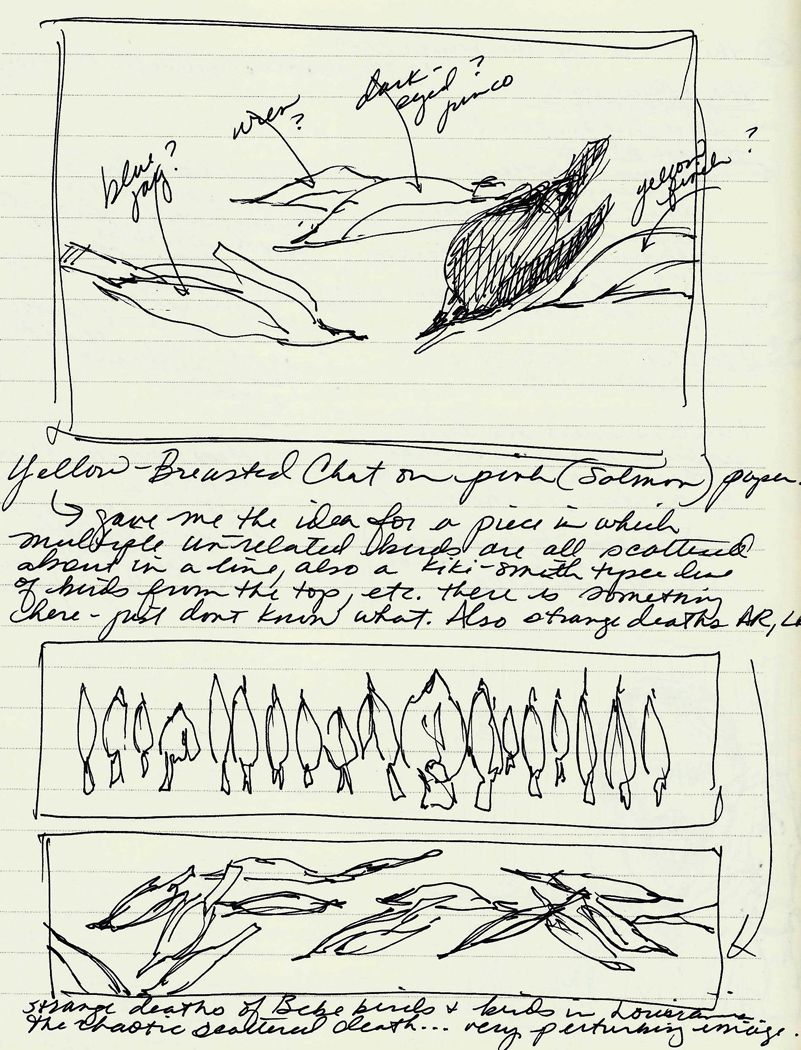 blue jay?
wren?
dark-eyed junco?
yellow finch?
Yellow-Breasted Chat on pink (Salmon) paper.
↳ gave me the idea for a piece in which
multiple un-related birds are all scattered
about in a line, also a Kiki-Smith type line
of birds from the top, etc. there is something
there - just dont know what. Also strange deaths AR, LA
strange deaths of Bebe birds & birds in Louisiana
the chaotic scattered death... very perturbing image.